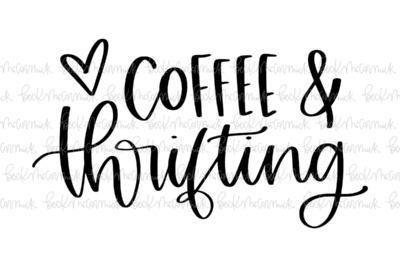 COFFEE &
thrifting